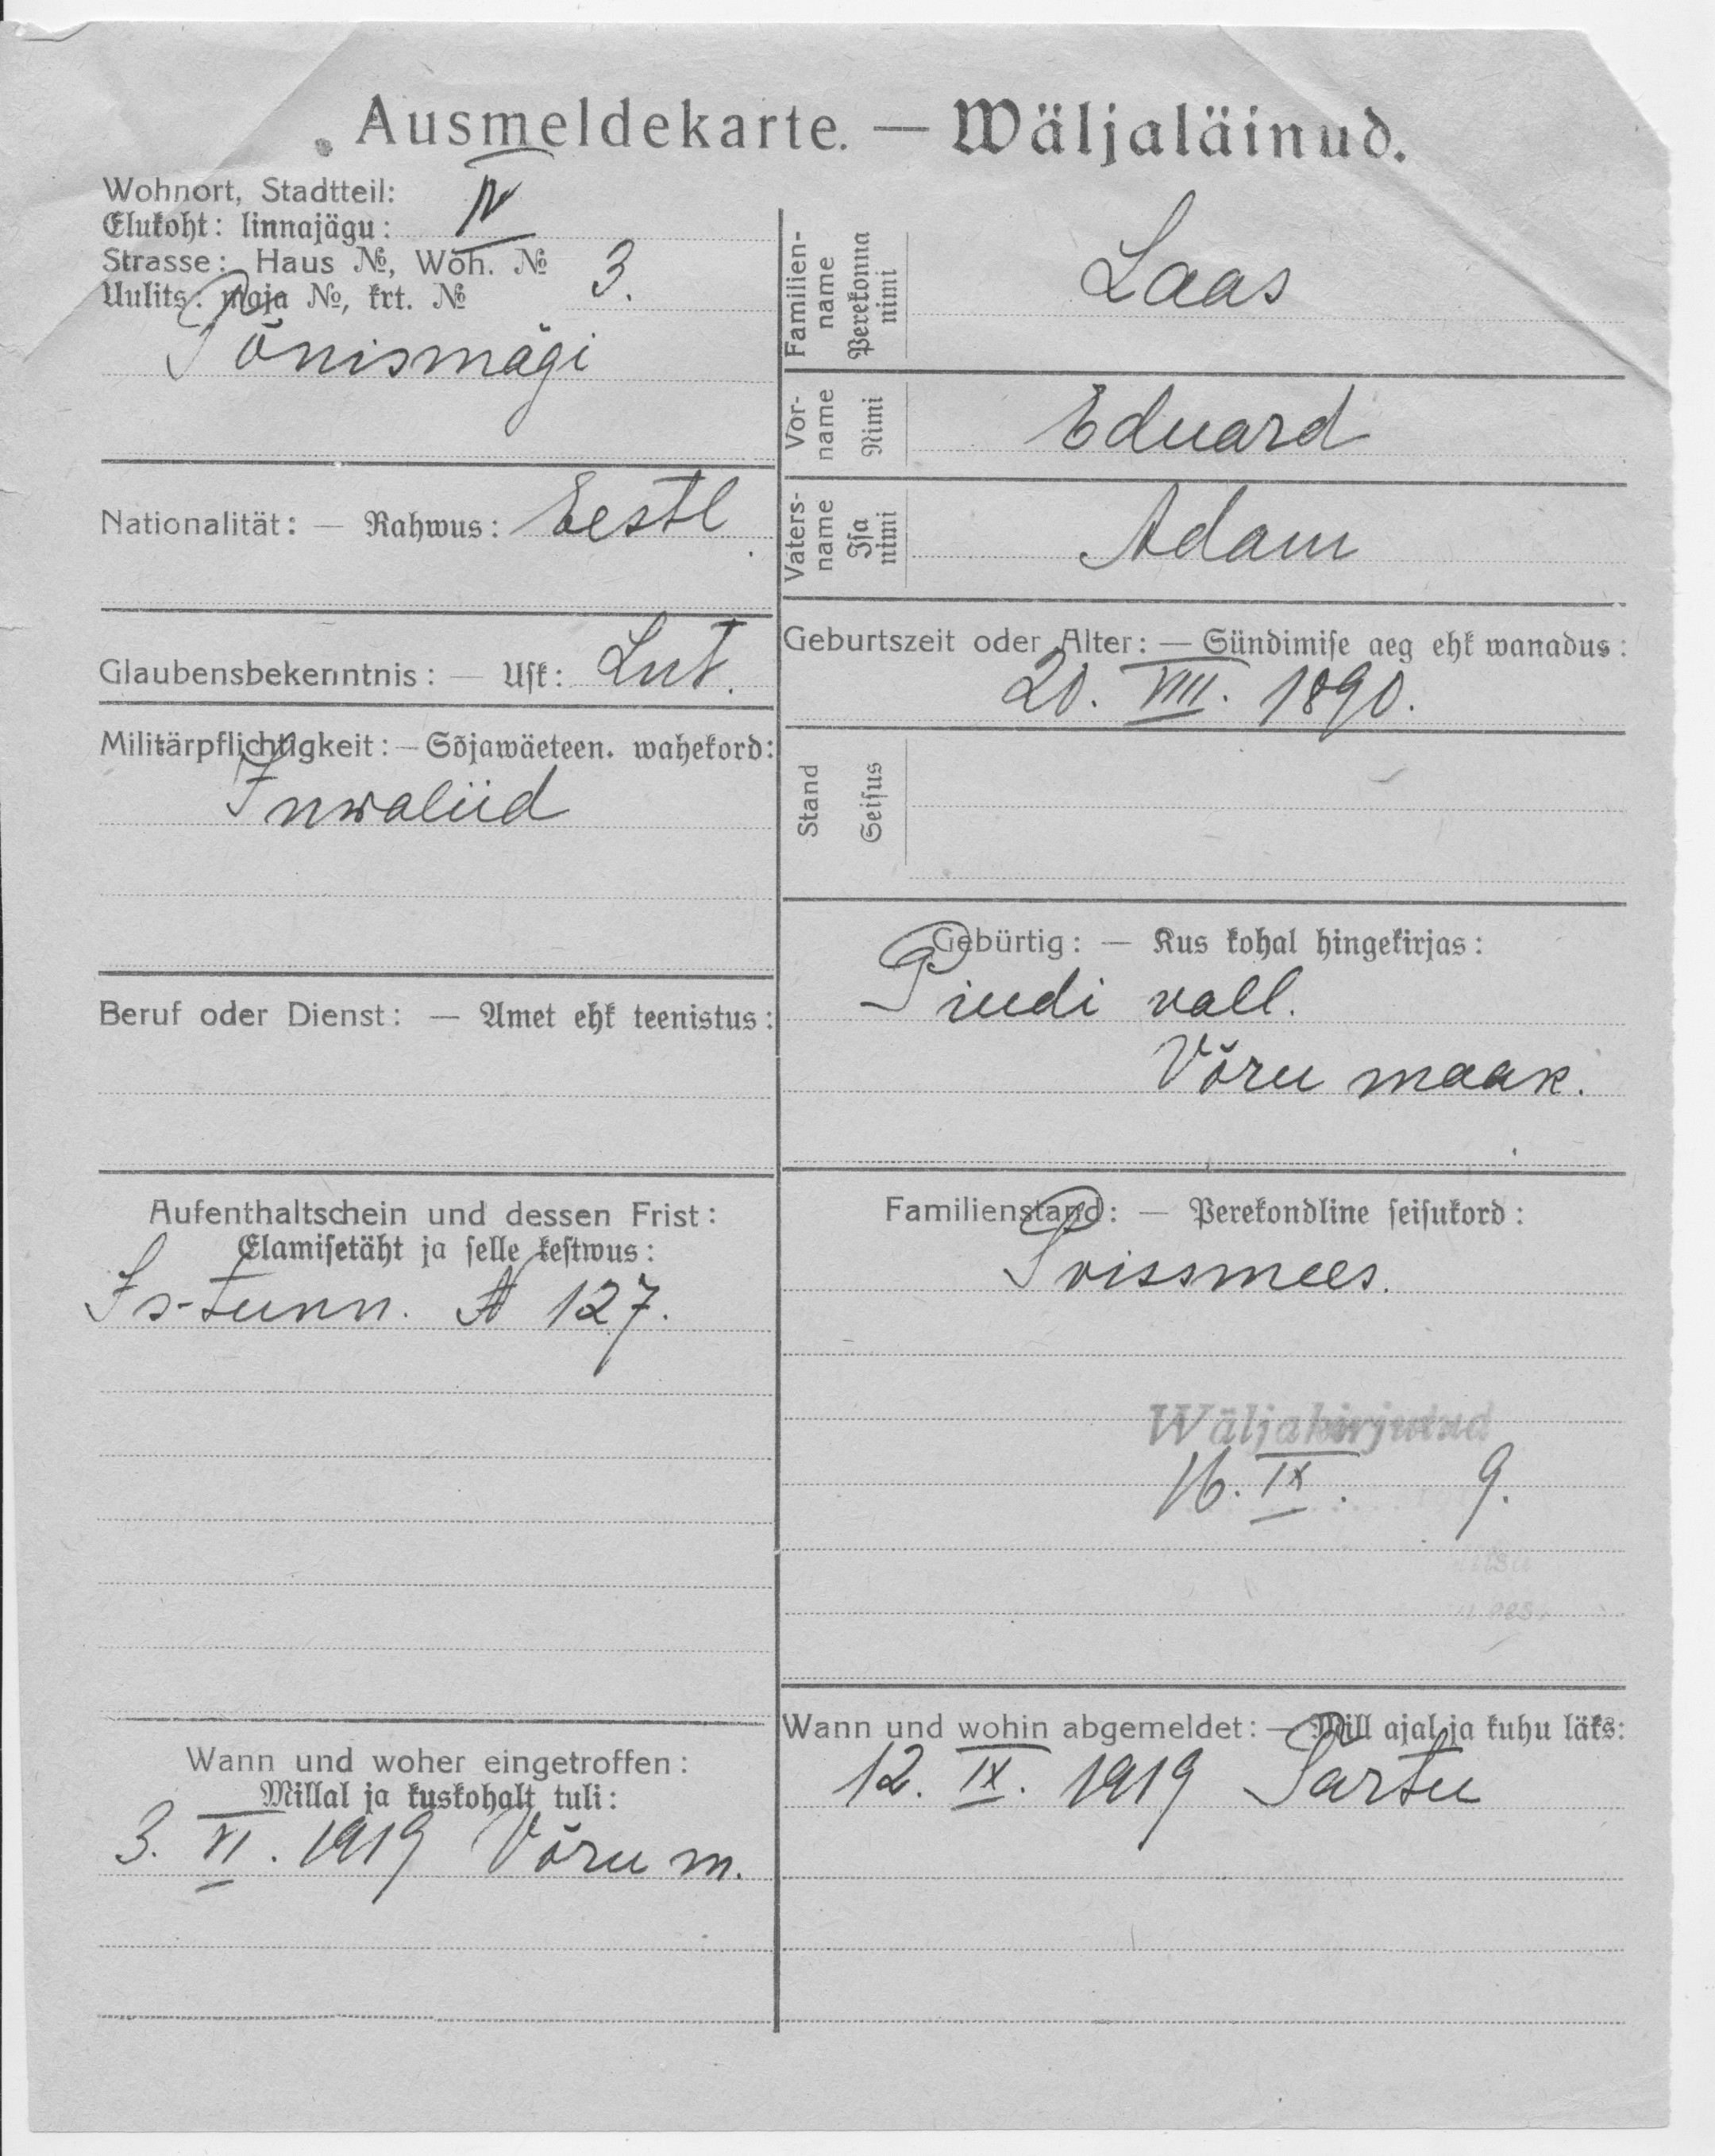 Ausmeldekarte. — Wäljaläinud.
Wohnort, Stadtteil:
Elukoht: linnajägu: IV
Strasse: Haus №, Woh. № 3.
Uulits: maja №, krt. №
Tõnismägi
Nationalität: — Rahwus: Eestl
Glaubensbekenntnis: — Usk: Lut.
Militärpflichtigkeit: — Sõjawäeteen. wahekord:
Inwaliid
Beruf oder Dienst: — Amet ehk teenistus:
Aufenthaltschein und dessen Frist:
Elamisetäht ja selle kestwus:
Is-tunn. № 127.
Wann und woher eingetroffen:
Millal ja kuskohalt tuli:
3. VI. 1919 Võru m.
Familien-
name
Perekonna
nimi
Laas
Vor-
name
Nimi
Eduard
Vaters-
name
Isa
nimi
Adam
Geburtszeit oder Alter: — Sündimise aeg ehk wanadus:
20. VIII. 1890.
Stand
Seisus
Gebürtig: — Kus kohal hingekirjas:
Pindi vall.
Võru maak.
Familienstand: — Perekondline seisukord:
Poissmees.
Wäljakirjutud
16. IX. 9.
Wann und wohin abgemeldet: — Mill ajal ja kuhu läks:
12. IX. 1919 Tartu